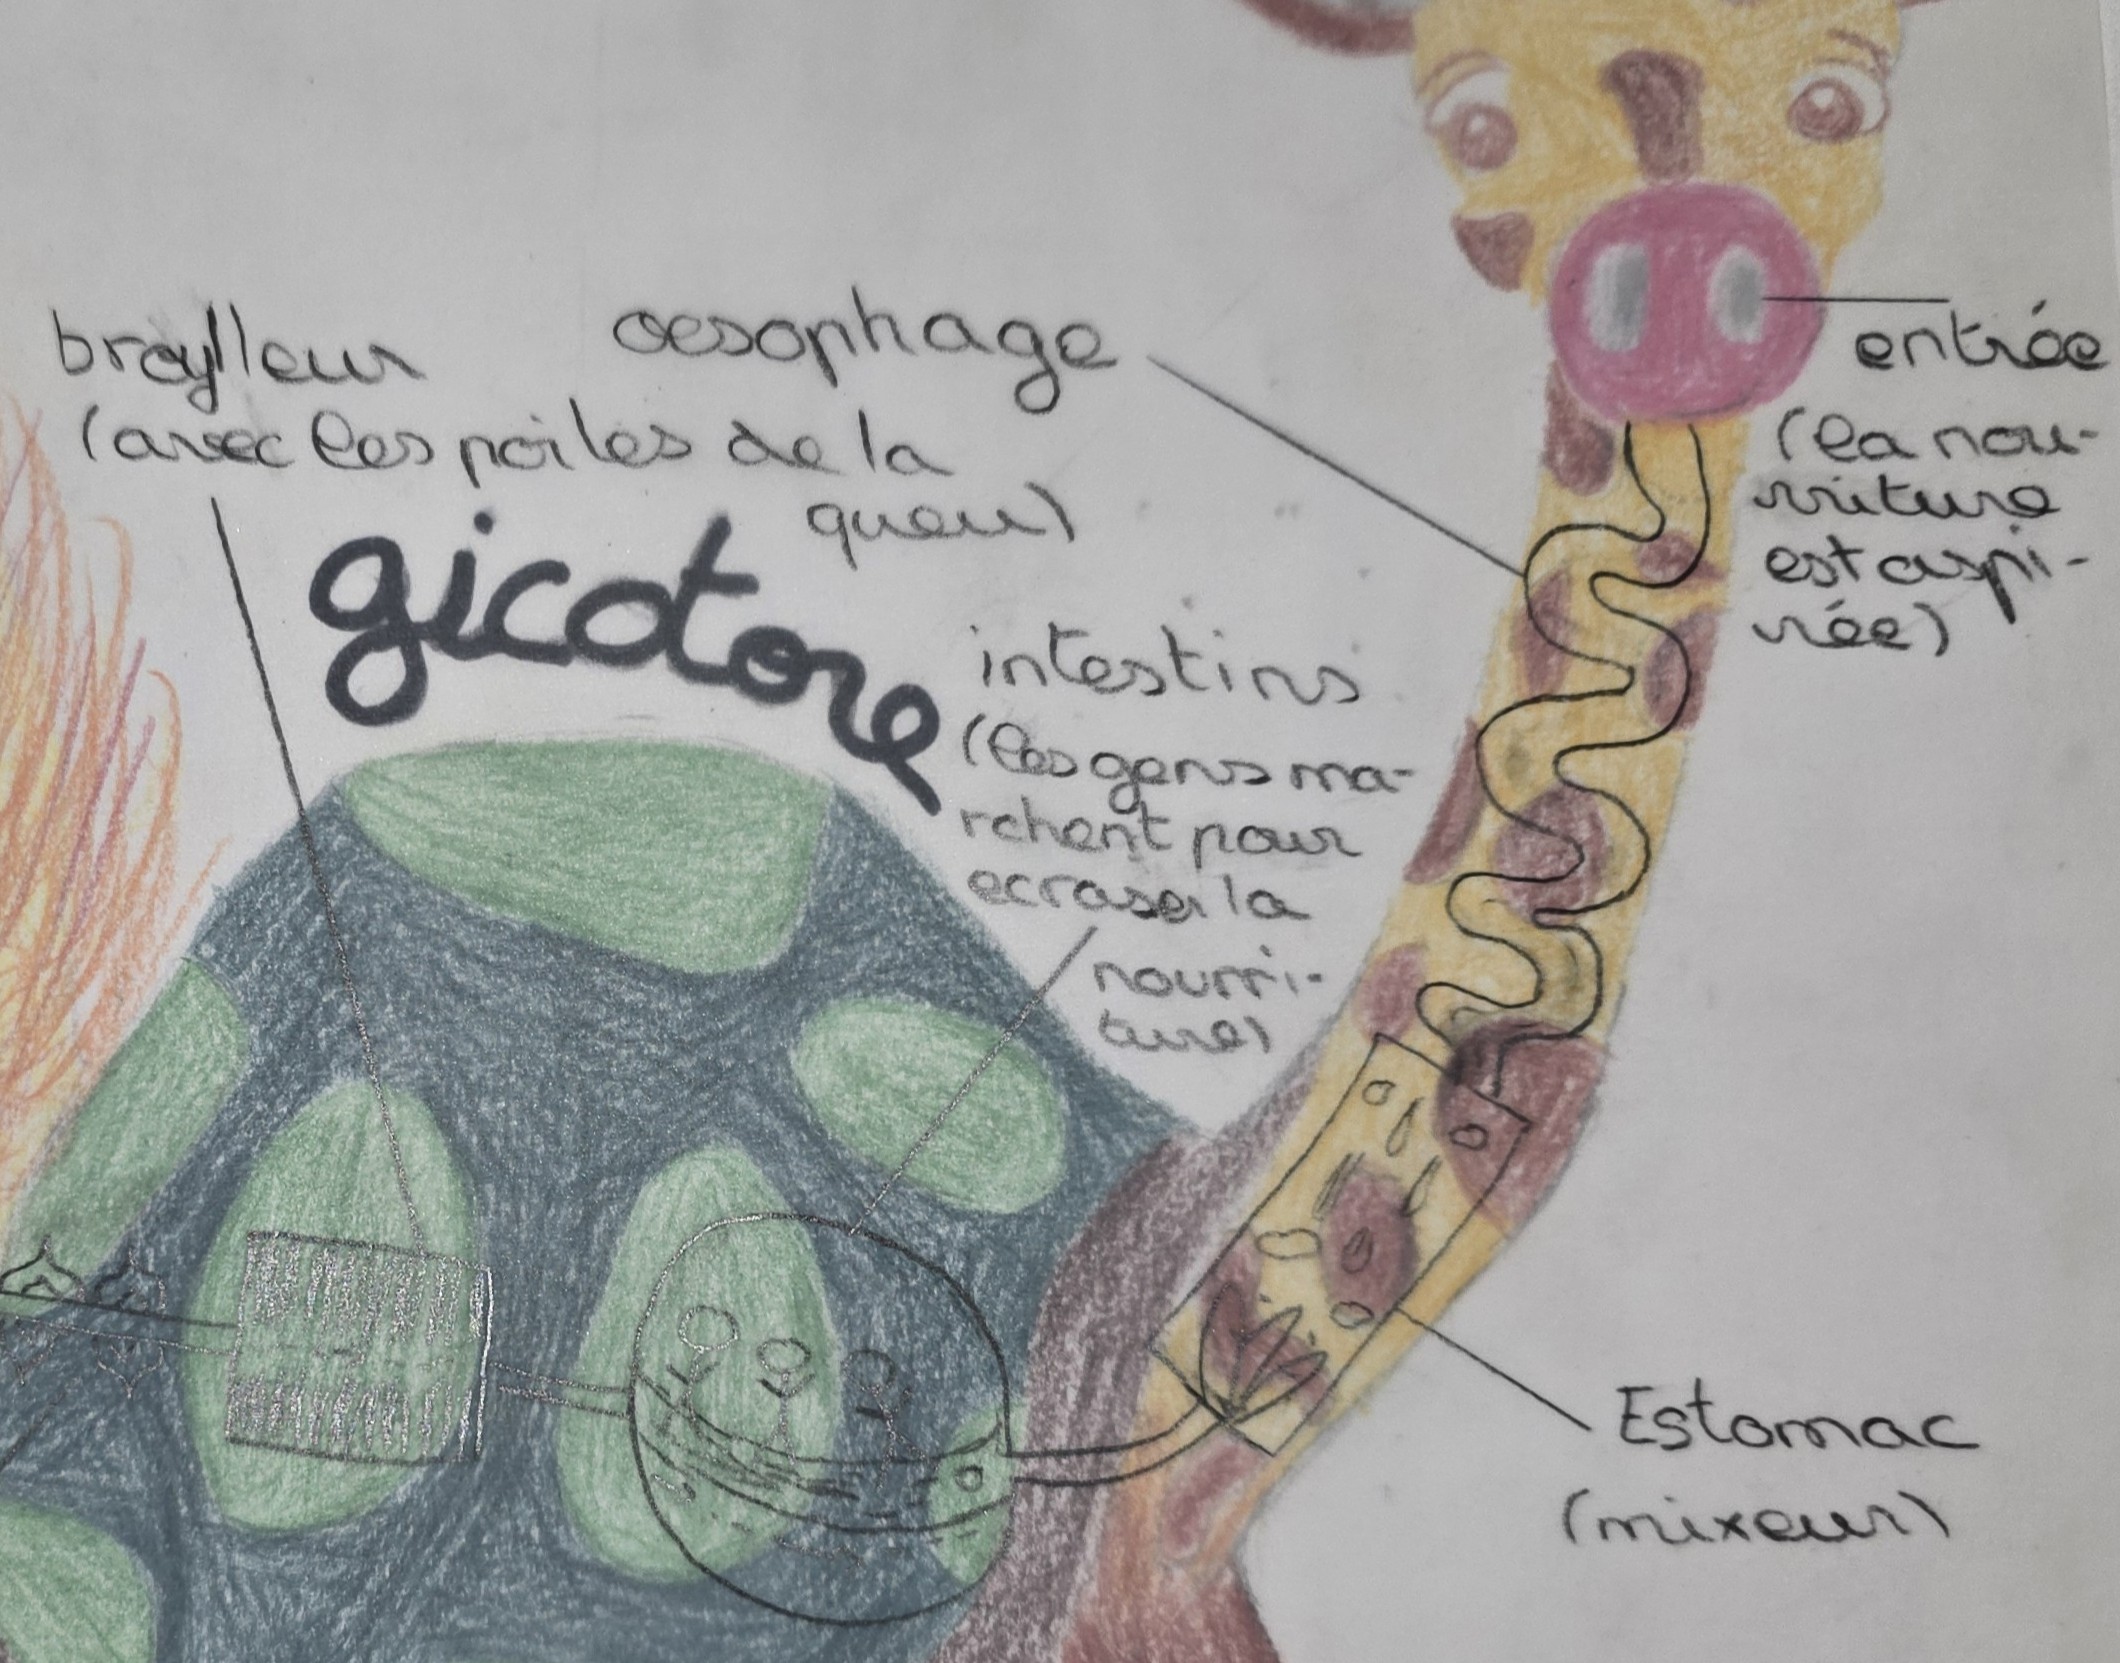 braylleur
(avec les poiles de la
queu)
oesophage
entrée
(la nou-
rriture
est aspi-
rée)
gicotore
intestins
(les gens ma-
rchent pour
ecraser la
nourri-
ture)
Estomac
(mixeur)